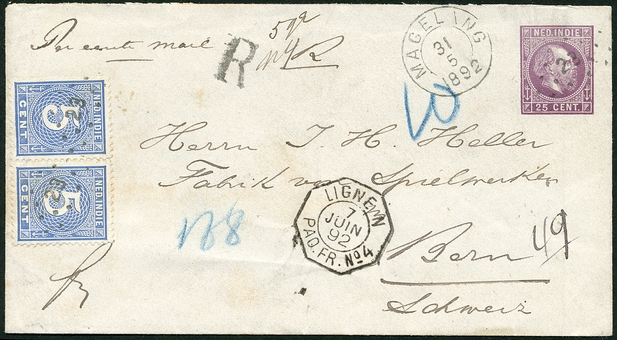 Per eerste mail
R
R
MAGELANG
31
5
1892
NED. INDIE
25 CENT.
23
NED. INDIE
5
CENT
23
NED. INDIE
5
CENT
23
Herrn J. H. Heller
Fabrik von Spielwerken
Bern
Schweiz
LIGNE N
7
JUIN
92
PAQ. FR. No 4
188
49